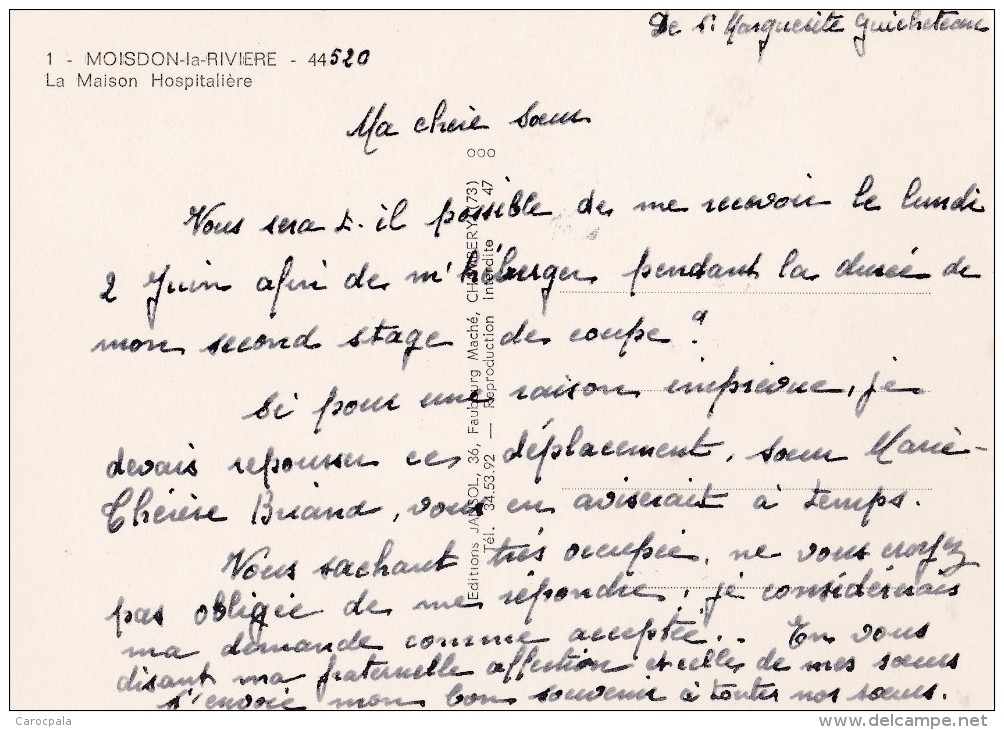 De Sr Marguerite Guicheteau
1 - MOISDON-la-RIVIERE - 44520
La Maison Hospitalière
Ma chère soeur
ooo
Vous sera t-il possible de me recevoir le lundi
2 Juin afin de m'héberger pendant la durée de
mon second stage de coupe ?
Si pour une raison imprévue, je
devais repousser ce déplacement, soeur Marie-
Thérèse Briand, vous en aviserait à temps.
Vous sachant très occupée, ne vous croyez
pas obligée de me répondre, je considèrerais
ma demande comme acceptée.. En vous
disant ma fraternelle affection et celle de mes soeurs
j'envoie mon bon souvenir à toutes nos soeurs.
Editions JANSOL, 36, Faubourg Maché, CHAMBERY (73)
Tél. 34.53.92 — Reproduction Interdite 47
Carocpala
www.delcampe.net